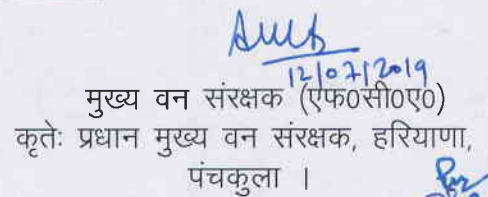 12/07/2019
मुख्य वन संरक्षक (एफ0सी0ए0)
कृतेः प्रधान मुख्य वन संरक्षक, हरियाणा,
पंचकुला ।